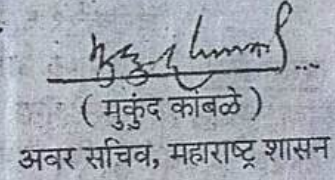 ( मुकुंद कांबळे )
अवर सचिव, महाराष्ट्र शासन